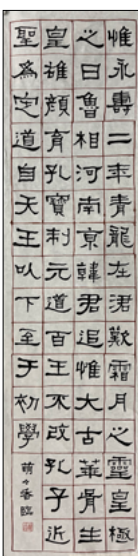 惟永壽二年青龍在涒歎霜月之靈皇極
之日魯相河南京韓君追惟大古華胥生
皇雄顏育孔寶制元道百王不改孔子近
聖為定道自天王以下至于初學
香臨